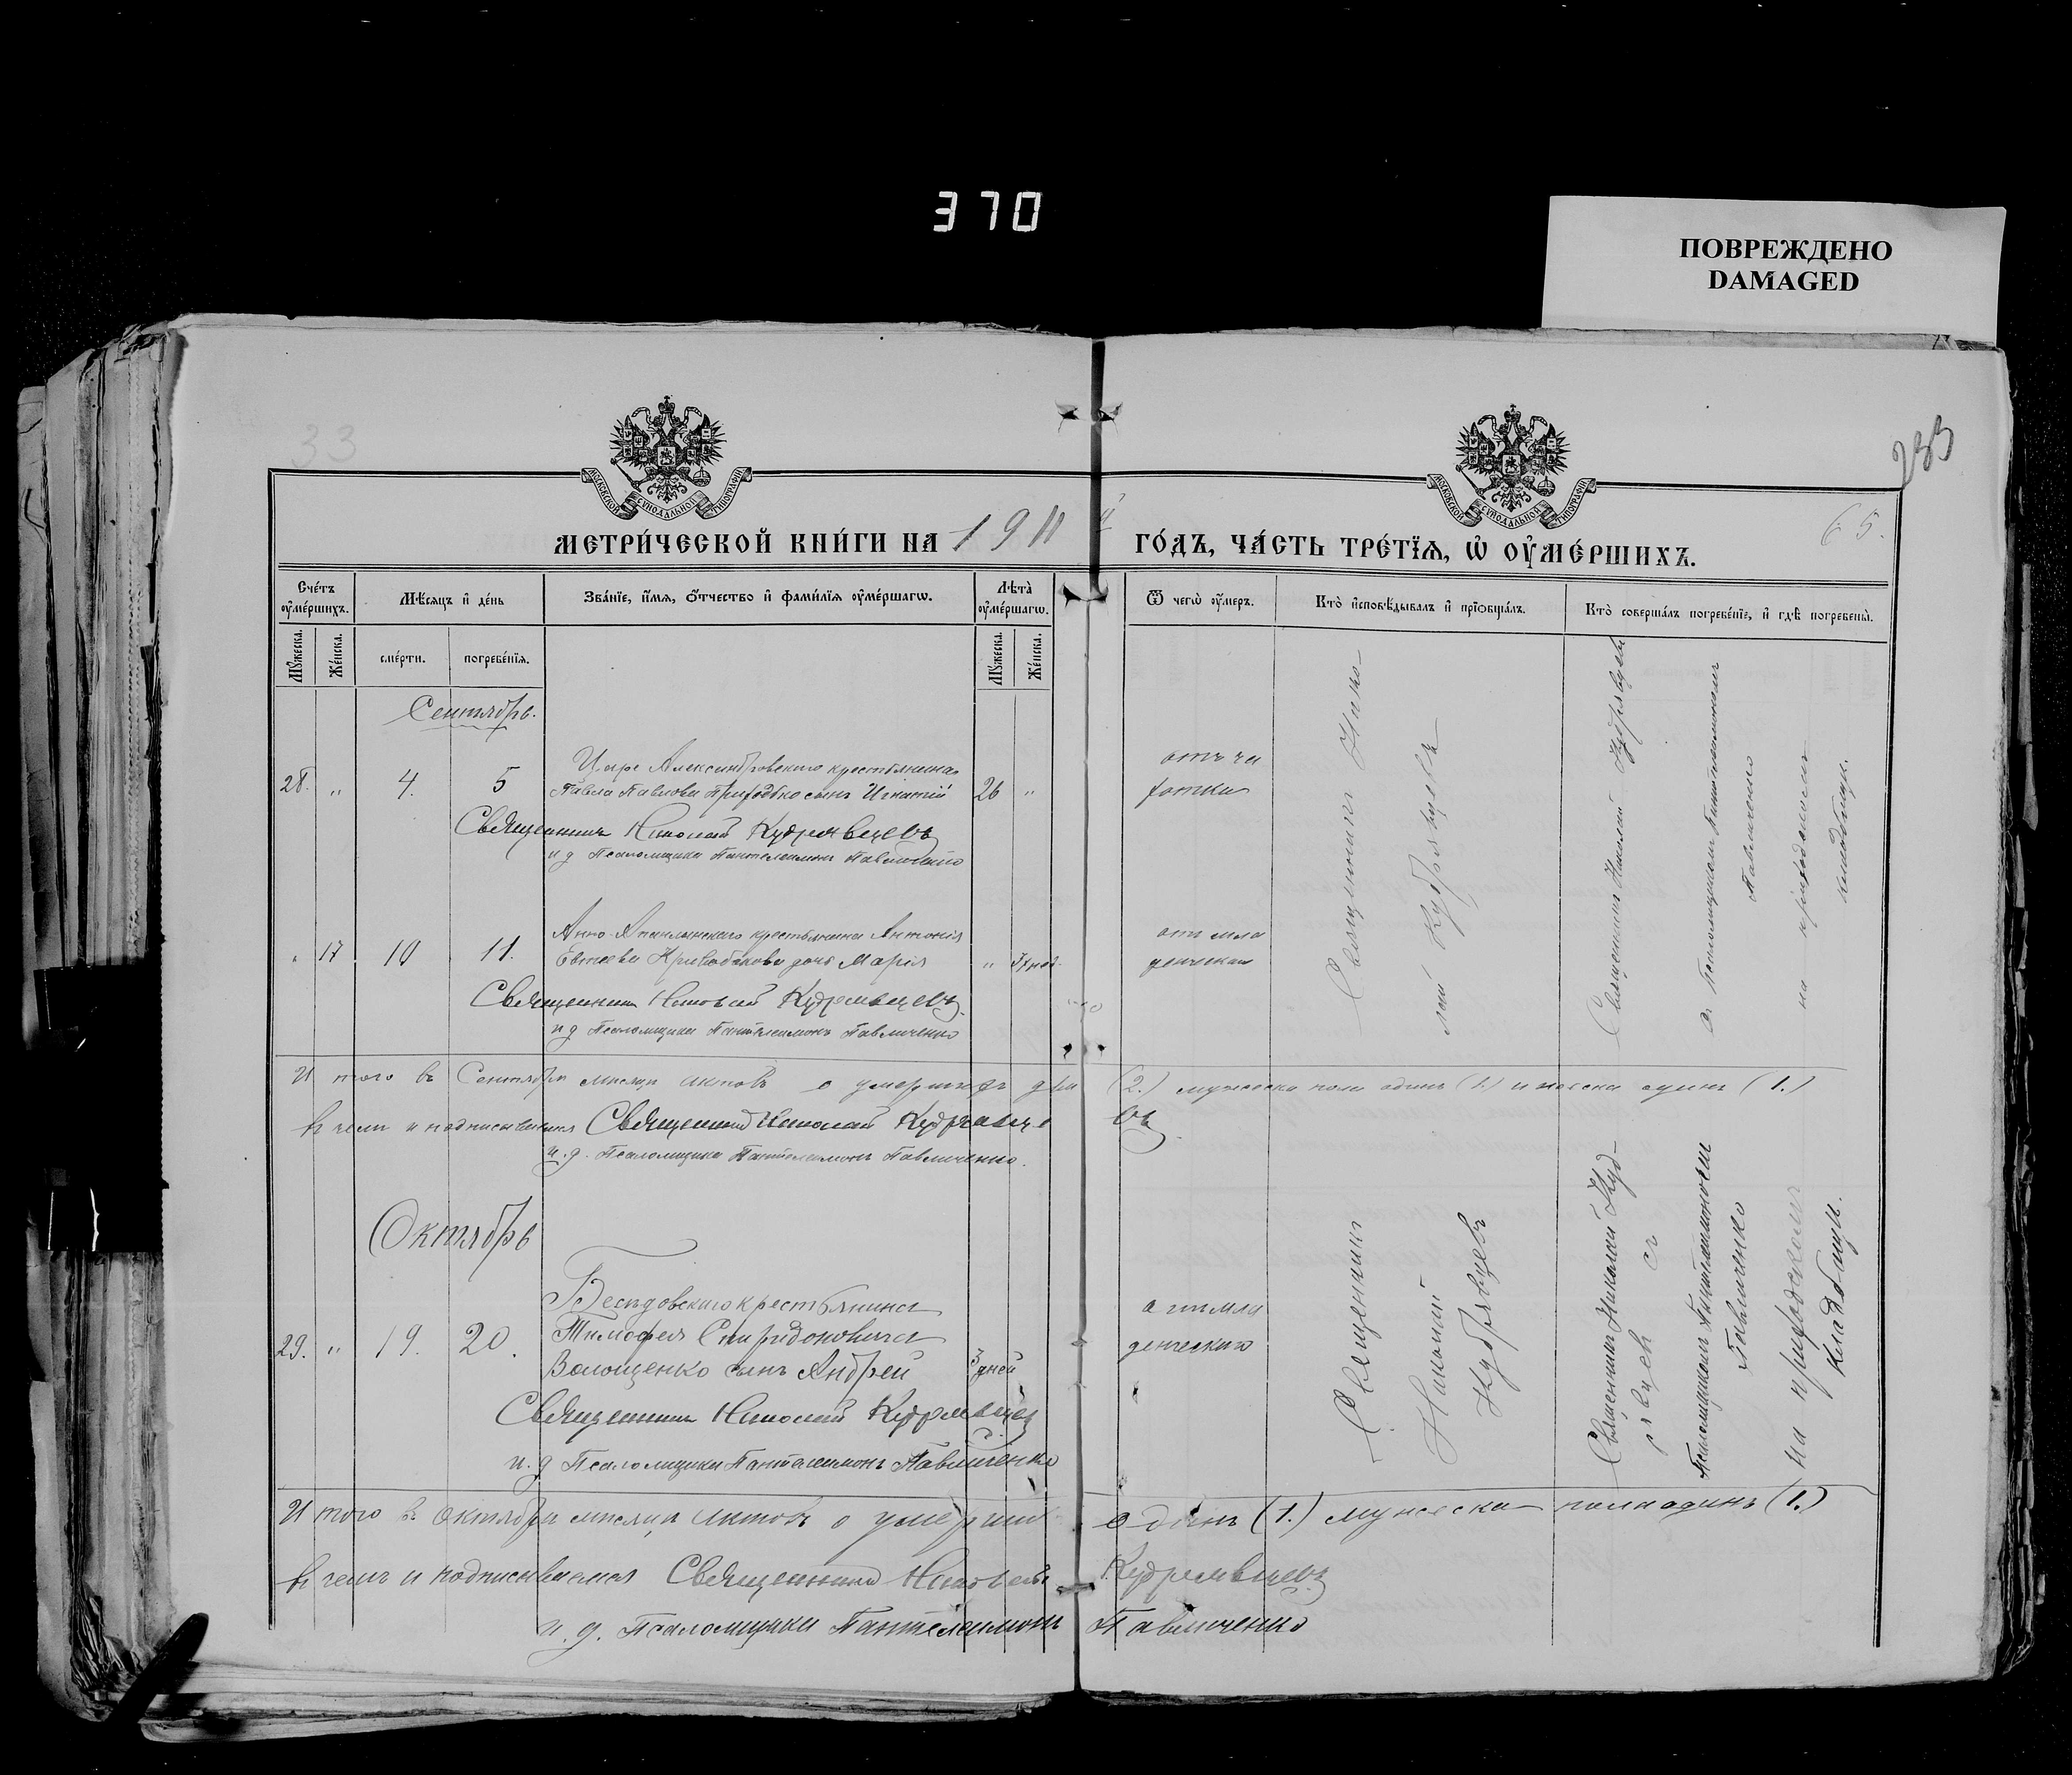 370
ПОВРЕЖДЕНО
DAMAGED
33
233
МОСКОВСКОЙ СѴНОДАЛЬНОЙ ТИПОГРАФІИ
МОСКОВСКОЙ СѴНОДАЛЬНОЙ ТИПОГРАФІИ
МЕТРИ́ЧЕСКОЙ КНИ́ГИ НА 1911 й ГО́ДЪ, ЧА́СТЬ ТРЕ́ТЇѦ, Ѡ҆ ОУ҆МЕ́РШИХЪ.
65.
Сче́тъ оу҆ме́ршихъ.
Мѣ́сяцъ и҆ де́нь
Зва́нїе, и҆́мѧ, ѻ҆́тчество и҆ фами́лїѧ оу҆ме́ршагѡ.
Лѣ́та оу҆ме́ршагѡ.
Ѿ чегѡ̀ оу҆́меръ.
Кто̀ и҆сповѣ́дывалъ и҆ прїѡбща́лъ.
Кто̀ соверша́лъ погребе́нїе, и҆ гдѣ̀ погребены̀.
Мꙋ́жеска.
Же́нска.
сме́рти.
погребе́нїѧ.
Мꙋ́жеска.
Же́нска.
Сентябрь.
28. " 4. 5
Александровскаго крестьянина
Павла Павлова сынъ Игнатій
26 "
отъ ча
хотки
Священникъ Николай Кудрявцевъ
и д Псаломщика Пантелеимонъ Павличенко
Священникъ Нико-
лай Кудрявцевъ
Священникъ Николай Кудрявцевъ
съ Псаломщикомъ Пантелеимономъ
Павличенко
на приходскомъ
кладбищѣ.
" 17 10 11.
крестьянина Антонія
Евтеева дочь Марія
"
отъ мла
денческая
Священникъ Николай Кудрявцевъ
и д Псаломщика Пантелеимонъ Павличенко
И того въ Сентябрѣ мѣсяцѣ актовъ о умершихъ два (2.) мужеска пола одинъ (1.) и женска одинъ (1.)
въ чемъ и подписываемся Священникъ Николай Кудрявцевъ
и. д. Псаломщика Пантелеимонъ Павличенко.
Октябрь
29. " 19. 20.
Бесѣдовскаго крестьянина
Тимофея Спиридоновича
Волощенко сынъ Андрей
3 дней
отъ мла
денческаго
Священникъ Николай Кудрявцевъ
и. д Псаломщика Пантелеимонъ Павличенко
Священникъ
Николай
Кудрявцевъ
Священникъ Николай Куд-
рявцевъ съ
Псаломщикомъ Пантелеимономъ
Павличенко
на приходскомъ
кладбищѣ.
И того въ Октябрѣ мѣсяцѣ актовъ о умершихъ одинъ (1.) мужеска пола одинъ (1.)
въ чемъ и подписываемся Священникъ Николай Кудрявцевъ
и. д. Псаломщика Пантелеимонъ Павличенко